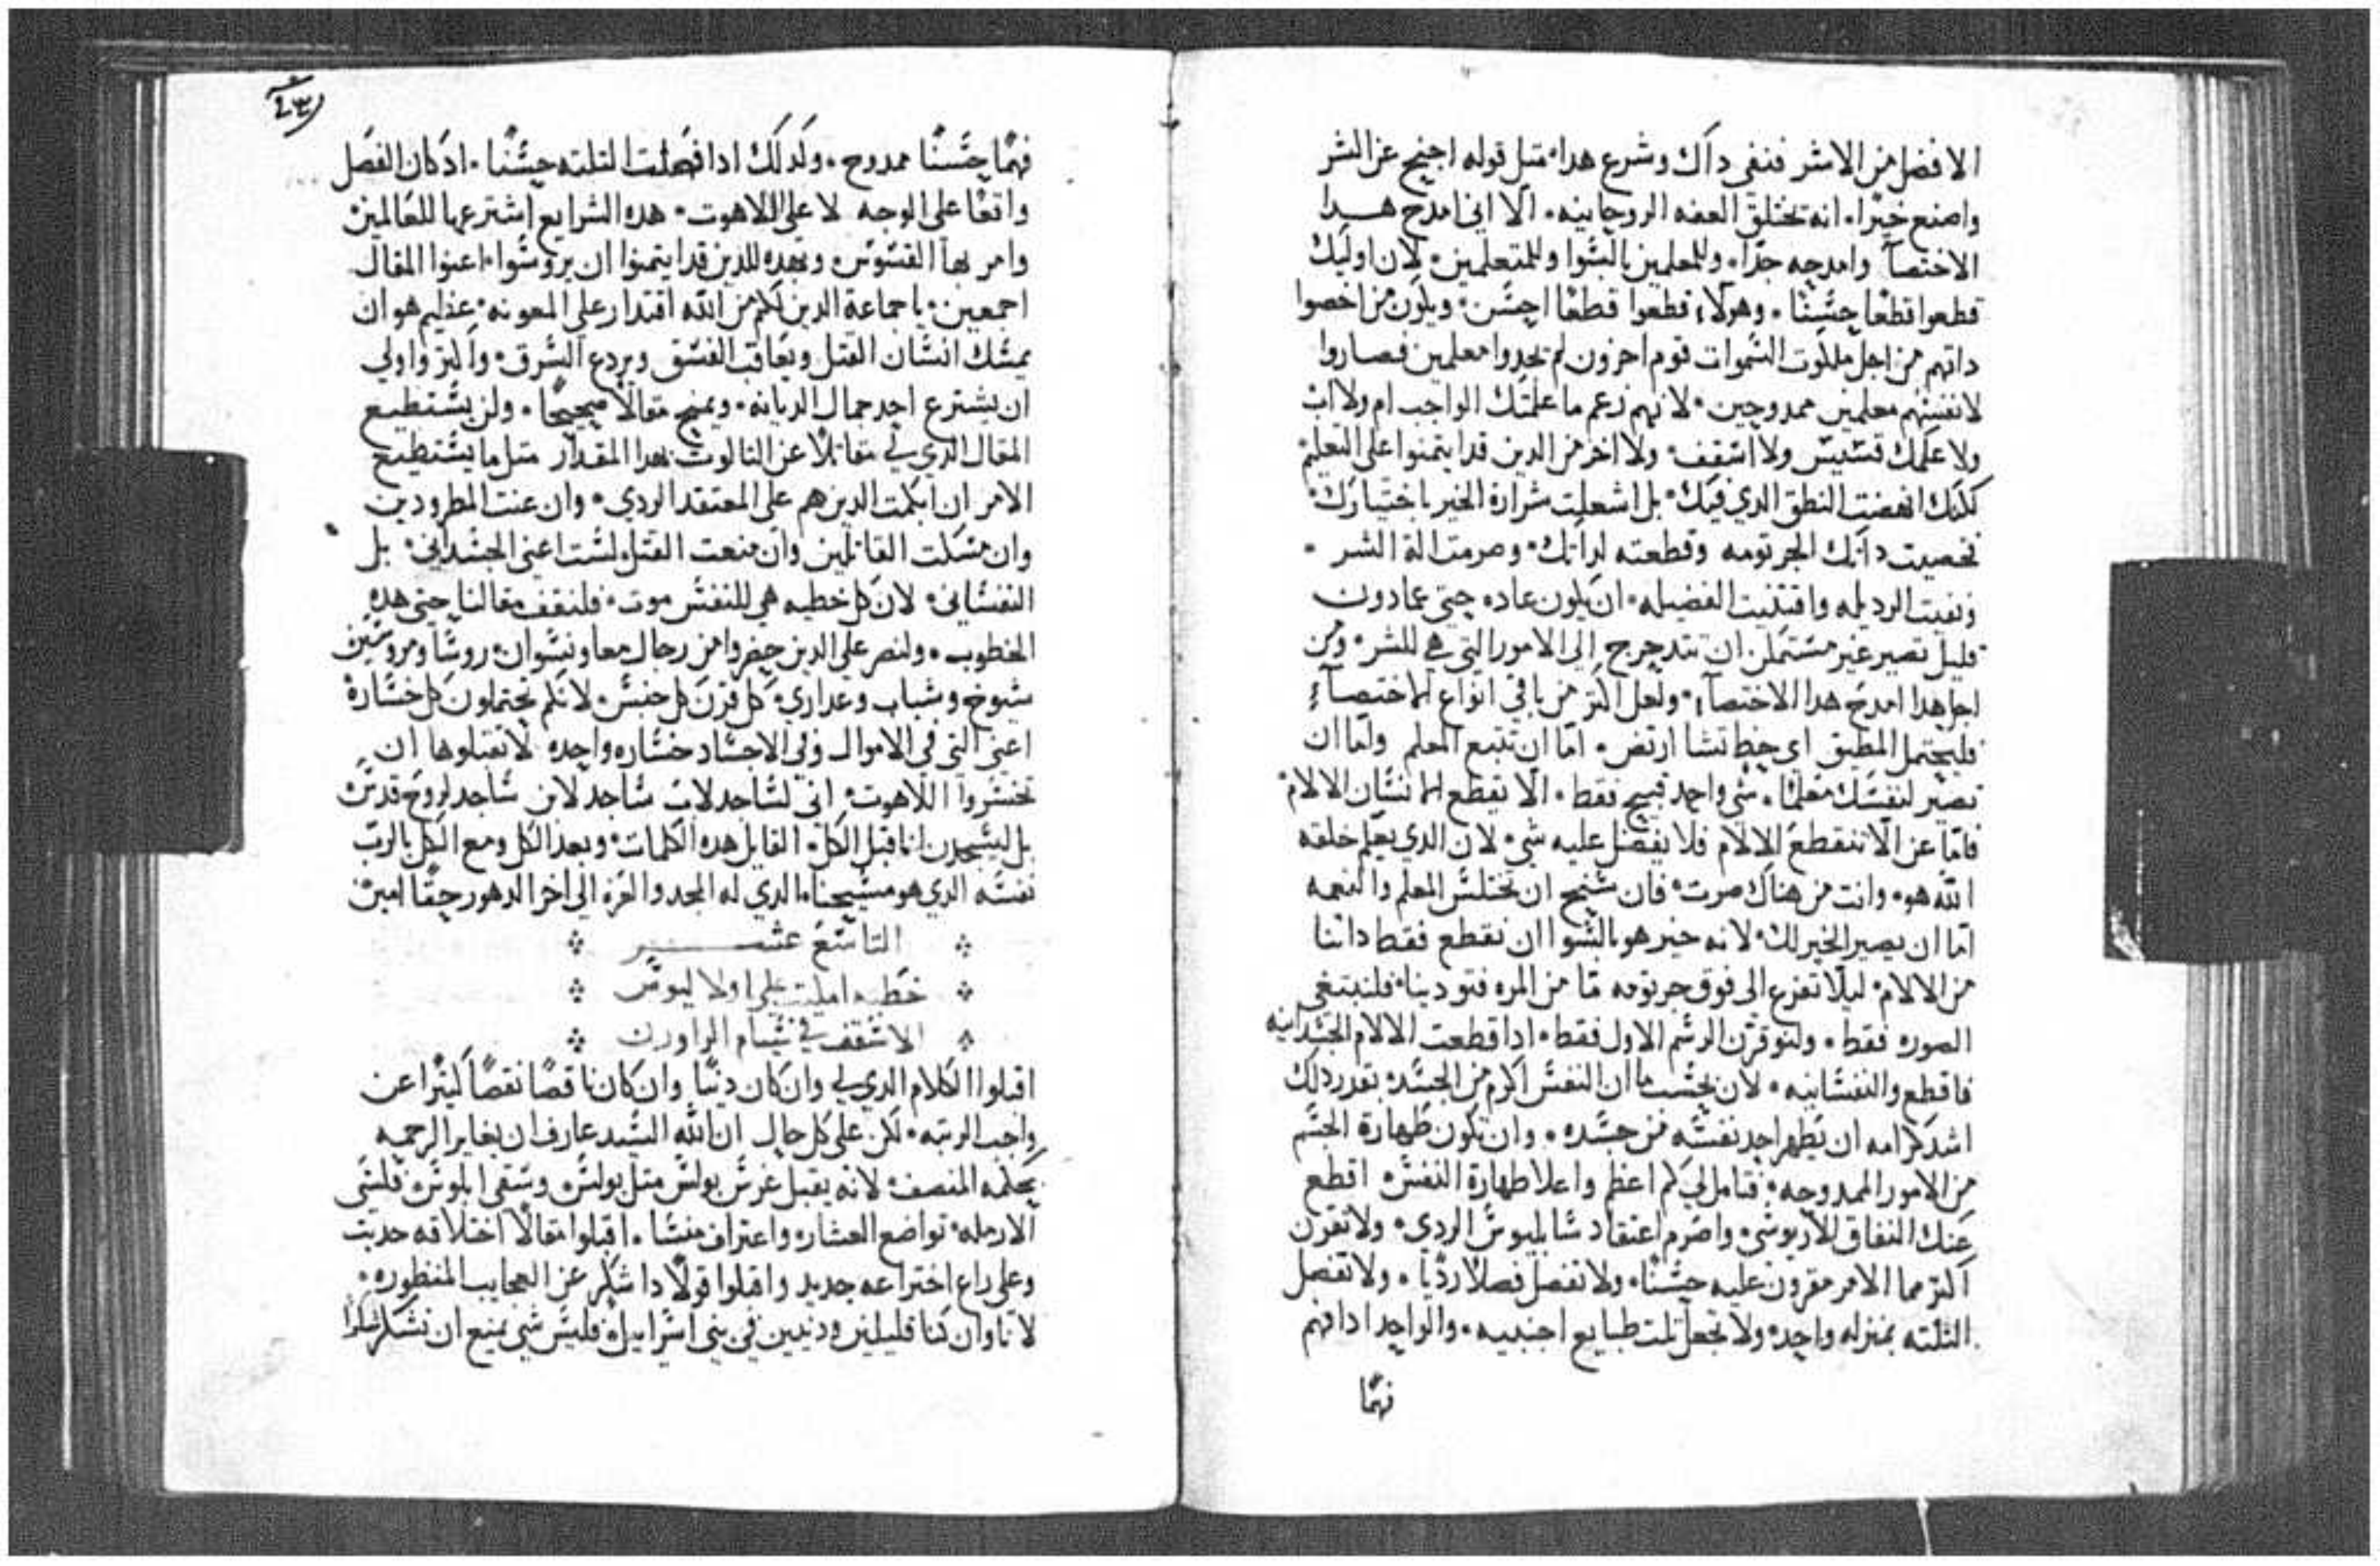 الافضل من الاشر فنفى داك وشرع هدا، متل قوله اجنح عن الشر
واصنع خيرًا. انه تختلق العفه الروحانيه. الا اني امدح هـدا
الاختصآ وامدحه جدًا. وللمعلمين بالسوا وللمتعلمين. لان اوليك
قطعوا قطعًا حسنًا. وهولاء قطعوا قطعًا احسن. ويكون من اخصوا
داتهم من اجل ملكوت السموات قوم اخرون لم يجدوا معلمين فصاروا
لانفسهم معلمين ممدوحين. لانهم زعم ما علمتك الواجب ام ولا اب
ولا علمك قسيس ولا اسقف. ولا اخر من الدين قد ايتمنوا على التعليم
لكنك انهضت النطق الدي فيك. بل اشعلت شرارة الخير باختيارك.
فخصيت داتك الجرتومه وقطعته لداتك. وصرمت الة الشر.
ونفيت الرديله واقتنيت الفضيله. ان يكون عاده حتى عمادون
قليل تصير غير متمكن ان تتدحرج الى الامور التي هي للشر. ومن
اجل هدا امدح هدا الاختصآء. ولعل اكتر من باقي انواع الاختصآء
فليحتمل المطيق اي خط تشا ارتض. اما ان تتبع المعلم واما ان
تصير لنفسك معلمًا. شي واحد قبيح فقط. الا يقطع انسان الالام
فاما عن الا تنقطع الالام فلا يفضل عليه شي. لان الدي يعلم خلقه
الله هو. وانت من هناك صرت. فان سنح ان تختلس المعلم والنعمه
اما ان يصير الخير لك. لانه خير هو بالسوا ان نقطع فقط داتنا
من الالام. ليلا تفزع الى فوق جرتومه ما من المره فتودينا. فلنبتغي
الصوره فقط. ولنوقرن الرسم الاول فقط. ادا قطعت الالام الجسدانيه
فاقطع والنفسانيه. لان بحسب ما ان النفس اكرم من الجسد. بقدر دلك
اشد كرامه ان يطهر احد نفسه من جسده. وان تكون طهارة الجسم
من الامور الممدوحه. فتامل لي كم اعظم واعلا طهارة النفس. اقطع
عنك النفاق للاريوسي. واصرم اعتقاد سابليوس الردي. ولا تقرن
اكتر مما الامر مقرون عليه حسنًا. ولا تفصل فصلًا رديًا. ولا تفصل
التلته بمنزله واحد. ولا تجعل تلت طبايع اجنبيه. والواحد ادا فهم
فهمًا
٤٣
فهمًا حسنًا ممدوح. وكدلك ادا فصلت التلته حسنًا. اد كان الفصل
واقعًا على الوجه لا على اللاهوت. هده الشرايع اشترعها للعالمين
وامر بها القسوس. وبهده للدين قد ايتمنوا ان يروسوا. اعينوا المقال
اجمعين. يا جماعة الدين لكم من الله اقتدار على المعونه. عظيم هو ان
يمسك انسان القتل ويعاقب الفسق ويردع السرق. واكتر واولى
ان يشترع احد جمال الديانه. ويمنح مقالًا صحيحًا. ولن يستطيع
المقال الدي لي مقاتلًا عن التالوت بهدا المقدار متل ما يستطيع
الامر ان ابكمت الدين هم على المعتقد الردي. وان عنت المطرودين
وان مسكت القاتلين وان منعت القتل. لست اعني الجسداني. بل
النفساني. لان كل خطيه هي للنفس موت. فلنقف مقالنا حتى هده
الخطوب. ولنصر على الدين حضروا من رجال معا ونسوان. روسا ومروسين
شيوخ وشباب وعداري. كل قرن كل جنس. لانكم تحتملون كل خسارة
اعني التي في الاموال وفي الاجساد خساره واحده لا تقبلوها ان
تخسروا اللاهوت. اني لساجد لاب ساجد لابن ساجد لروح قدس
بل ليسجدن انا قبل الكل. القايل هده الكلمات. وبعد الكل ومع الكل بالرب
نفسه الدي هو مسيحنا. الدي له المجد والعزه الى اخر الدهور حقًا امين
التاسع عشـــــــر
خطبه امليت على اولا ليوس
الاسقف في نيسام الراورن
اقبلوا الكلام الدي لي وان كان دنيًا وان كان ناقصًا نقصًا كثيرًا عن
واجب الرتبه. لكن على كل حال ان الله السيد عارف ان يغاير الرحمه
بحكمه المنصف. لانه يقبل غرس بولس متل بولس. وسقى ابلوس. فلسى
الارمله. تواضع العشار. واعتراف منسا. اقبلوا مقالًا اختلاقه حديت
وعلى راع اختراعه جديد واقبلوا قولًا داشكر عن العجايب المنظوره.
لانا وان كنا قليلين ودنيين في بني اسراييل. فليس شي يمنع ان نشكر شكرًا